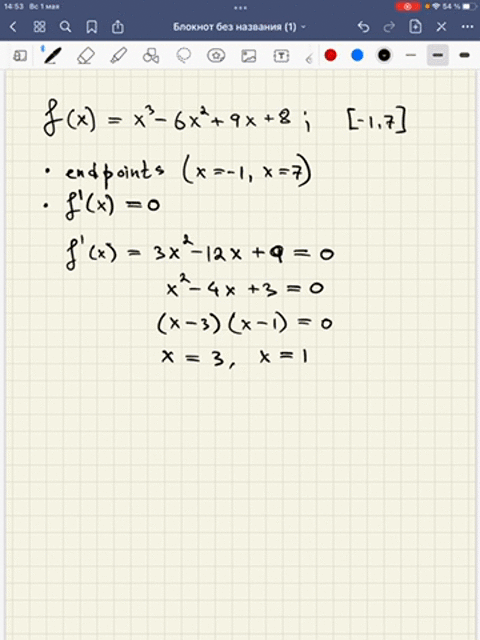 14:53 Вс 1 мая
54 %
Блокнот без названия (1)
f(x) = x³ - 6x² + 9x + 8 ; [-1,7]
• endpoints (x=-1, x=7)
• f'(x) = 0
f'(x) = 3x² - 12x + 9 = 0
x² - 4x + 3 = 0
(x-3)(x-1) = 0
x = 3, x = 1